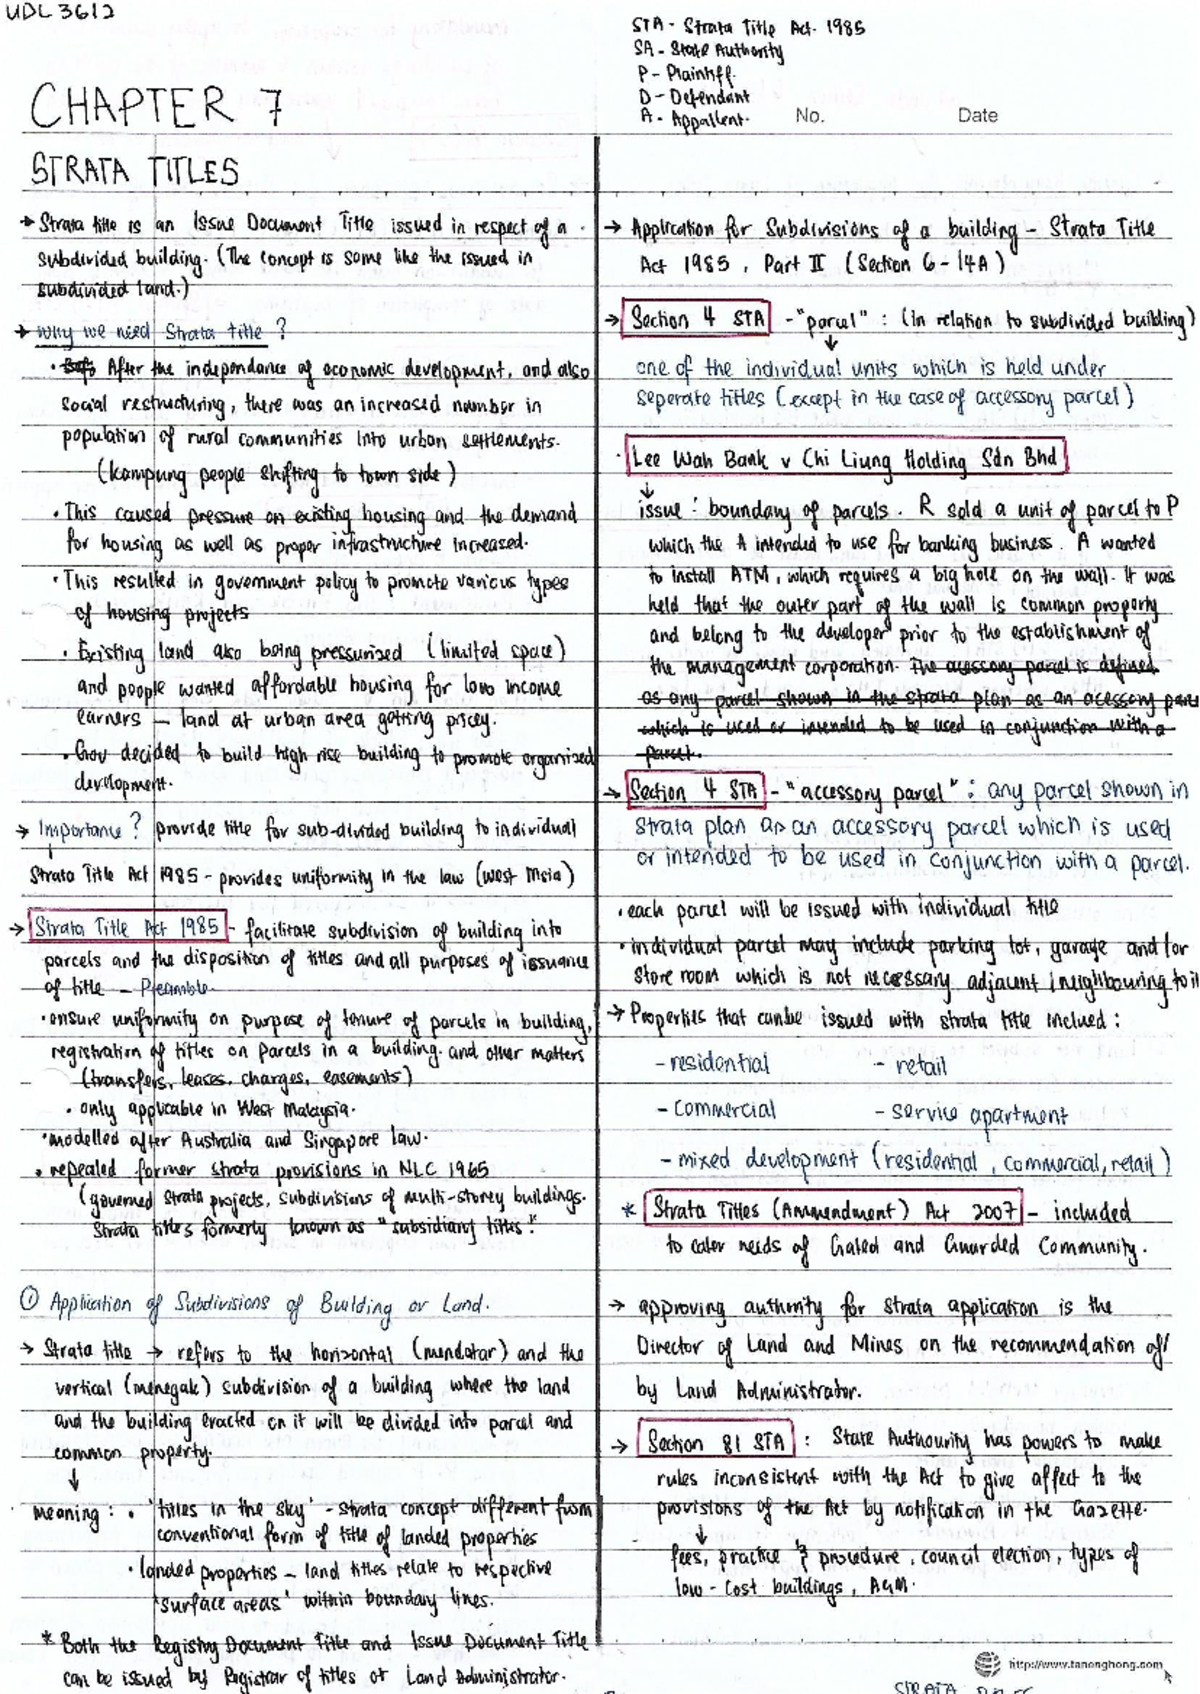 UDL3612
STA - Strata Title Act. 1985
SA - State Authority
P - Plaintiff.
D - Defendant
A - Appallent.
No. Date
CHAPTER 7
STRATA TITLES
→ Strata title is an Issue Document Title issued in respect of a
subdivided building. (The concept is some like the issued in
subdivided land.)
→ Why we need Strata title ?
• After the independance of economic development, and also
social restructuring, there was an increased number in
population of rural communities into urban settlements.
(kampung people shifting to town side)
• This caused pressure on existing housing and the demand
for housing as well as proper infrastructure increased.
• This resulted in government policy to promote various types
of housing projects
• Existing land also being pressurised (limited space)
and people wanted affordable housing for low income
earners – land at urban area getting pricey.
• Gov decided to build high rise building to promote organised
development.
→ Importance ? provide title for sub-divided building to individual
Strata Title Act 1985 - provides uniformity in the law (West Msia)
→ Strata Title Act 1985 - facilitate subdivision of building into
parcels and the disposition of titles and all purposes of issuance
of title – Preamble.
• ensure uniformity on purpose of tenure of parcels in building,
registration of titles on parcels in a building. and other matters
(transfers, leases, charges, easements)
• only applicable in West Malaysia.
• modelled after Australia and Singapore law.
• repealed former strata provisions in NLC 1965
(governed strata projects, subdivisions of multi-storey buildings.
Strata titles formerly known as "subsidiary titles."
① Application of Subdivisions of Building or Land.
→ Strata title → refers to the horizontal (mendatar) and the
vertical (menegak) subdivision of a building where the land
and the building eracted on it will be divided into parcel and
common property.
↓
meaning : • 'titles in the sky' - strata concept different from
conventional form of title of landed properties
• landed properties – land titles relate to respective
'surface areas' within boundary lines.
* Both the Registry Document Title and Issue Document Title
can be issued by Registrar of titles or Land Administrator.
→ Application for Subdivisions of a building - Strata Title
Act 1985, Part II (Section 6 - 14A)
→ Section 4 STA - "parcel" : (in relation to subdivided building)
↓
one of the individual units which is held under
seperate titles (except in the case of accessory parcel)
• Lee Wah Bank v Chi Liung Holding Sdn Bhd
↓
issue : boundary of parcels. R sold a unit of parcel to P
which the A intended to use for banking business. A wanted
to install ATM, which requires a big hole on the wall. It was
held that the outer part of the wall is common property
and belong to the developer prior to the establishment of
the management corporation. The acessory parcel is defined
as any parcel shown in the strata plan as an acessory parcel
which is used or intended to be used in conjunction with a
parcel.
→ Section 4 STA - "accessory parcel" : any parcel shown in
strata plan as an accessory parcel which is used
or intended to be used in conjunction with a parcel.
• each parcel will be issued with individual title
• individual parcel may include parking lot, garage and/or
store room which is not necessary adjacent / neighbouring to it
→ Properties that canbe issued with strata title inclued :
- residential - retail
- commercial - service apartment
- mixed development (residential, commercial, retail)
* Strata Titles (Ammendment) Act 2007 - included
to cater needs of Gated and Guarded Community.
→ approving authority for strata application is the
Director of Land and Mines on the recommendation of/
by Land Administrator.
→ Section 81 STA : State Authourity has powers to make
rules inconsistent with the Act to give affect to the
provisions of the Act by notification in the Gazette.
↓
fees, practice & procedure, council election, types of
low-cost buildings, AGM.
http://www.tanonghong.com